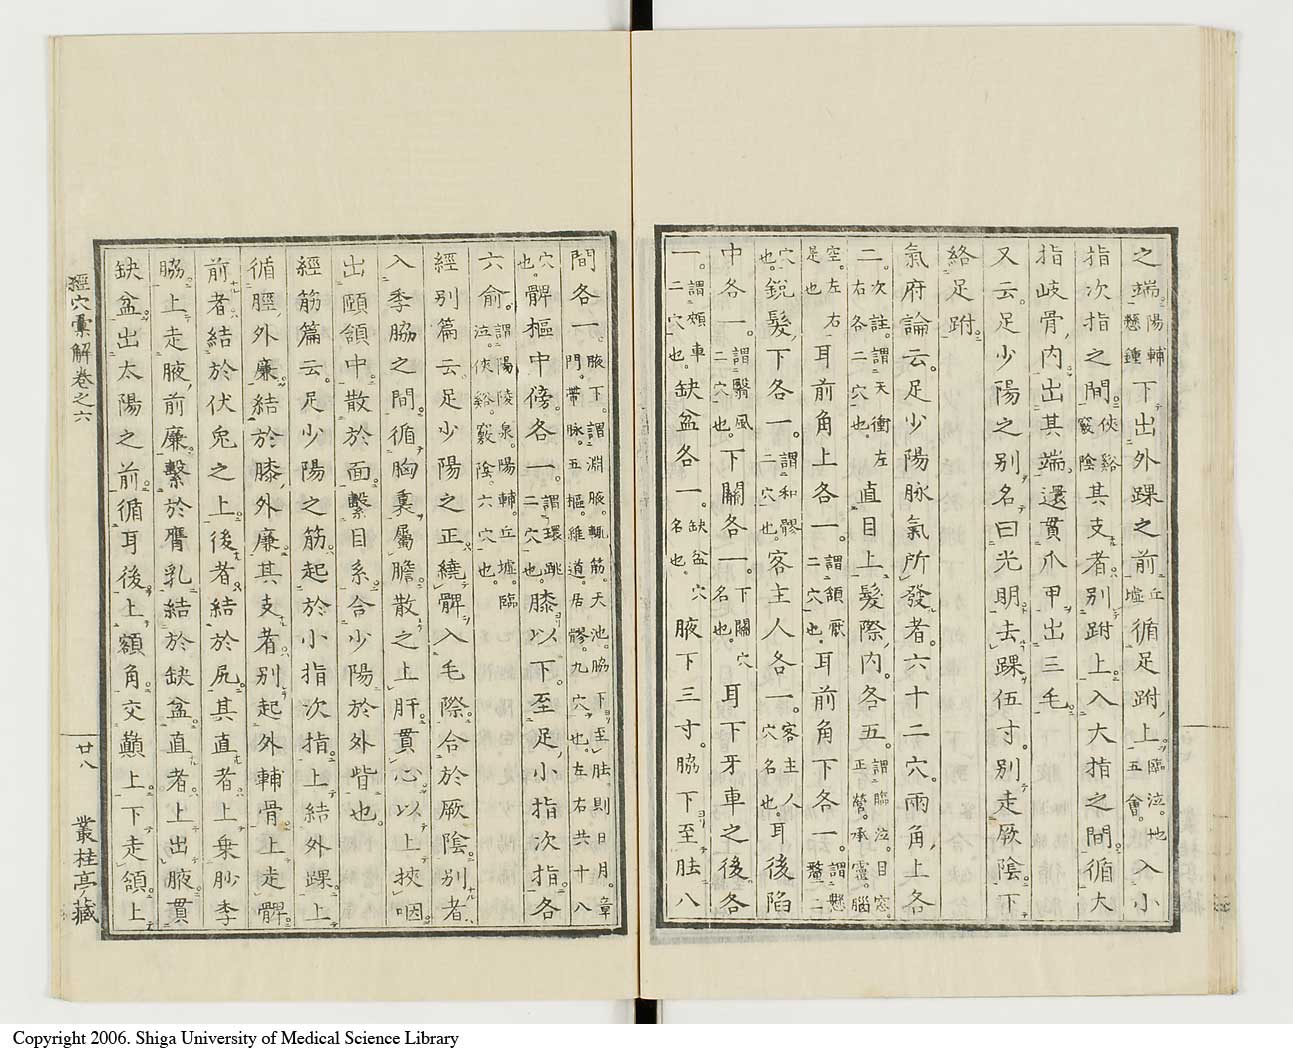 之端陽輔懸鍾下出外踝之前丘墟循足跗上臨泣地五會入小
指次指之間俠谿竅陰其支者別跗上入大指之間循大
指岐骨內出其端還貫爪甲出三毛
又云足少陽之別名曰光明去踝伍寸別走厥陰下
絡足跗
氣府論云足少陽脉氣所發者六十二穴兩角上各
二次註謂天衝左右各二穴也直目上髮際內各五謂臨泣目窓正營承靈腦
空左右是也耳前角上各一謂頷厭二穴也耳前角下各一謂懸釐二
穴也銳髮下各一謂和髎二穴也客主人各一客主人穴名也耳後陷
中各一謂翳風二穴也下關各一下關穴名也耳下牙車之後各
一謂頰車二穴也缺盆各一缺盆穴名也腋下三寸脇下至胠八
間各一腋下謂淵腋輒筋天池脇下至胠則日月章門帶脉五樞維道居髎九穴也左右共十八
穴也髀樞中傍各一謂環跳二穴也膝以下至足小指次指各
六俞謂陽陵泉陽輔丘墟臨泣俠谿竅陰六穴也
經別篇云足少陽之正繞髀入毛際合於厥陰別者
入季脇之間循胸裏屬膽散之上肝貫心以上挾咽
出頤頷中散於面繫目系合少陽於外眥也
經筋篇云足少陽之筋起於小指次指上結外踝上
循脛外廉結於膝外廉其支者別起外輔骨上走髀
前者結於伏兔之上後者結於尻其直者上乗䏚季
脇上走腋前廉繫於膺乳結於缺盆直者上出腋貫
缺盆出太陽之前循耳後上額角交巔上下走頷上
經穴彙解卷之六
廿八
叢桂亭藏
Copyright 2006. Shiga University of Medical Science Library